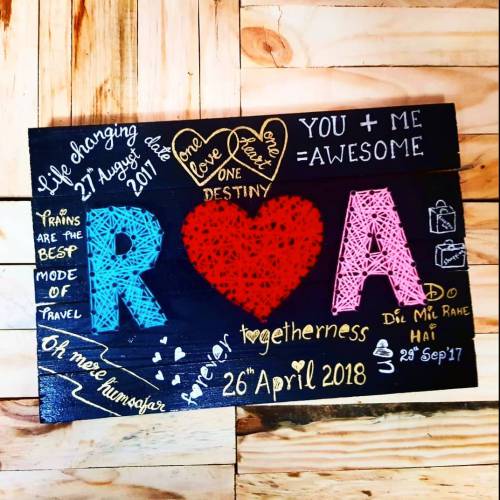 Life changing date
27th August
2017
one love
one heart
ONE
DESTINY
YOU + ME
=AWESOME
TRAINS
ARE THE
BEST
MODE
OF
TRAVEL
R A
Do
DIL MIL RAHE
HAI
29th Sep'17
Oh mere humsafar
forever
togetherness
26th April 2018